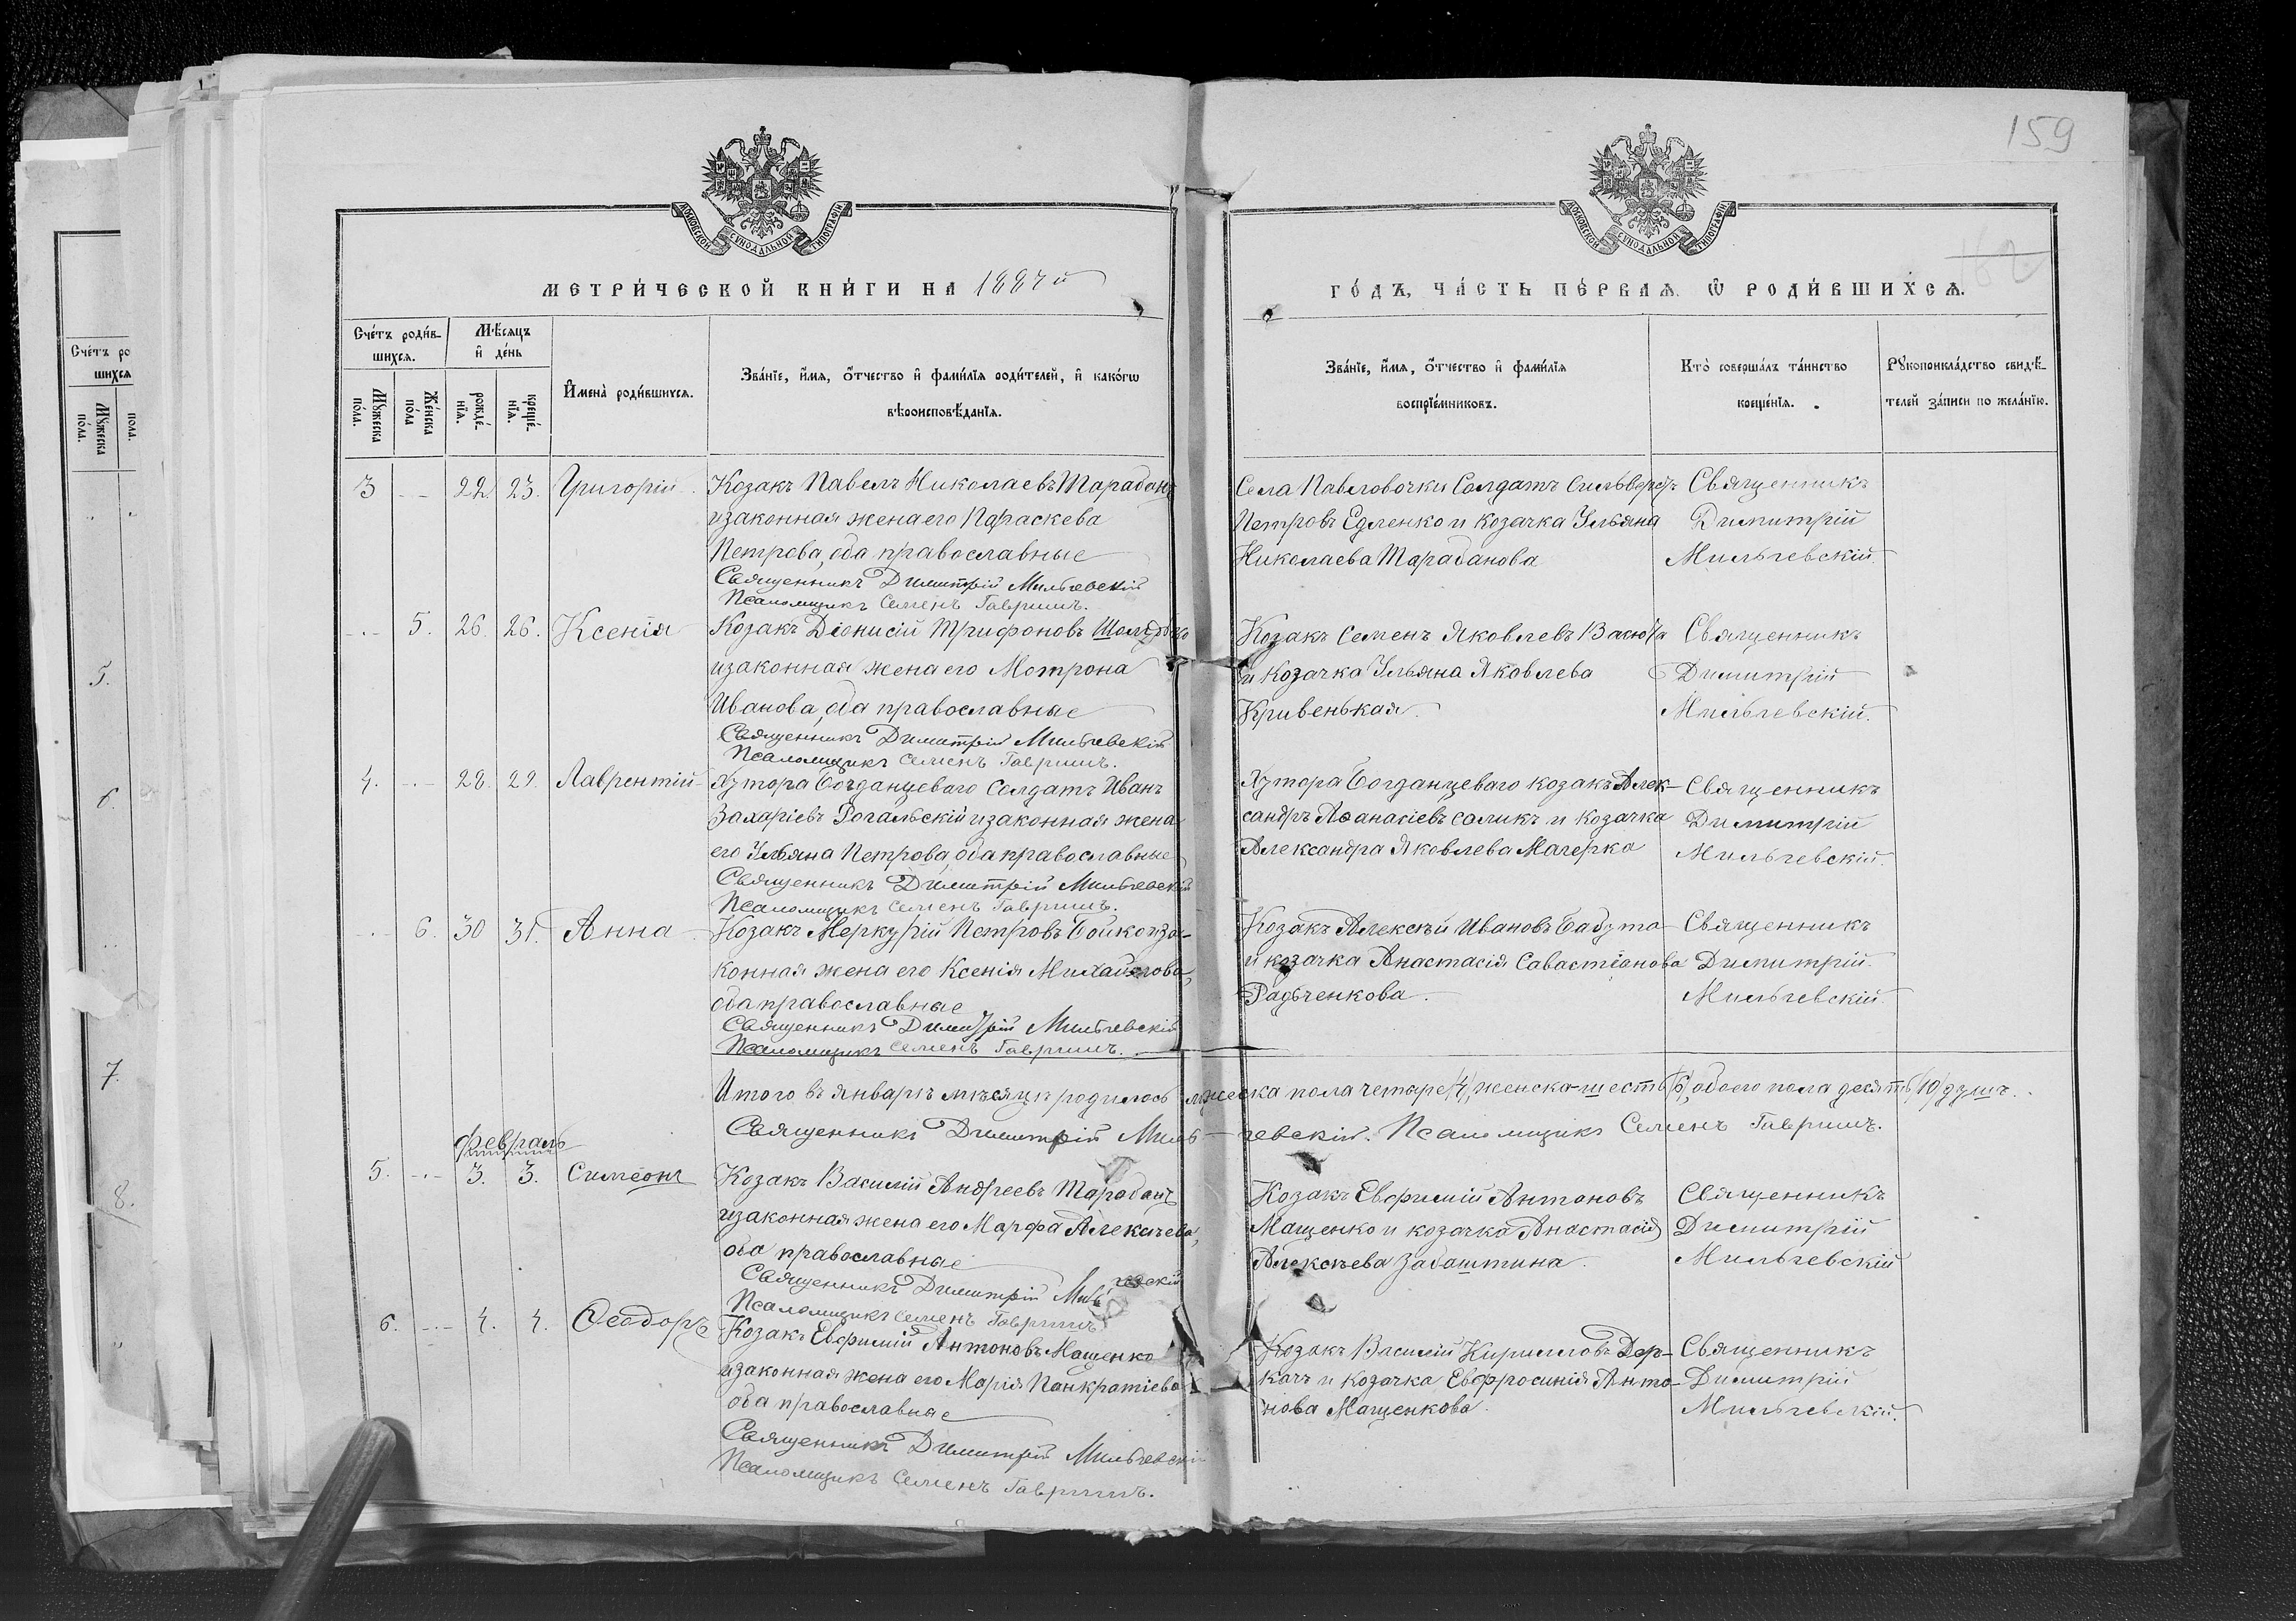 159
МОСКОВСКОЙ СУНОДАЛЬНОЙ ТИПОГРАФІИ
МОСКОВСКОЙ СУНОДАЛЬНОЙ ТИПОГРАФІИ
162
МЕТРИ́ЧЕСКОЙ КНИ́ГИ НА 1887й
ГО́ДЪ, ЧА́СТЬ ПЕ́РВАЯ Ѡ РОДИ́ВШИХСЯ.
Сче́тъ роди́в-
шихся.
Мѣ́сяцъ
и де́нь
Мꙋ́жеска по́ла.
Же́нска по́ла
рожде́-
нїя.
креще́-
нїя.
Имена̀ роди́вшихся.
Зва́нїе, и́мя, о́тчество и фами́лїя роди́телей, и како́гѡ
вѣроисповѣ́данїя.
Зва́нїе, и́мя, о́тчество и фами́лїя
воспрїе́мниковъ.
Кто̀ соверша́лъ та́инство
креще́нїя.
Рꙋкоприкла́дство свидѣ́-
телей за́писи по жела́нїю.
Сче́тъ ро
шихся
Мꙋ́жеска по́ла.
пола.
5.
6.
7.
8.
3 22 23. Григорій Козакъ Павелъ Николаевъ Тарабанъ
и законная жена его Параскева
Петрова, оба православные
Священникъ Димитрій Мильчевскій
Псаломщикъ Семенъ Гавришъ.
Села Павловочки Солдатъ Сильверстъ
Петровъ Едленко и козачка Ульяна
Николаева Тарабанова
Священникъ
Димитрій
Мильчевскій.
5. 26. 26. Ксенія Козакъ Діонисій Трифоновъ
и законная жена его Мотрона
Иванова, оба православные
Священникъ Димитрій Мильчевскій
Псаломщикъ Семенъ Гавришъ.
Козакъ Семенъ Яковлевъ Васюта
и Козачка Ульяна Яковлева
Кривенькая.
Священникъ
Димитрій
Мильчевскій.
4. 28. 29. Лаврентій Хутора Богданцеваго Солдатъ Иванъ
Захаріевъ Рогальскій и законная жена
его Ульяна Петрова, оба православные
Священникъ Димитрій Мильчевскій
Псаломщикъ Семенъ Гавришъ.
Хутора Богданцеваго козакъ Алек-
сандръ Аѳанасіевъ Саликъ и козачка
Александра Яковлева Мачерка
Священникъ
Димитрій
Мильчевскій.
6. 30 31. Анна Козакъ Меркурій Петровъ Бойко и за-
конная жена его Ксенія Михайлова,
оба православные
Священникъ Димитрій Мильчевскій
Псаломщикъ Семенъ Гавришъ.
Козакъ Алексѣй Ивановъ Бабута
и козачка Анастасія Савастіанова
Радченкова.
Священникъ
Димитрій
Мильчевскій.
Итого въ Январѣ мѣсяцѣ родилось мужеска пола четыре /4/, женска-шесть /6/, обоего пола десять /10/ душъ.
Священникъ Димитрій Мильчевскій. Псаломщикъ Семенъ Гавришъ.
Февраль
5. 3. 3. Симеонъ Козакъ Василій Андреевъ Тарабанъ
и законная жена его Марфа Алексѣева,
оба православные
Священникъ Димитрій Мильчевскій
Псаломщикъ Семенъ Гавришъ.
Козакъ Евфимій Антоновъ
Мащенко и козачка Анастасія
Алексѣева Забаштина.
Священникъ
Димитрій
Мильчевскій
6. 4. 4. Ѳеодоръ Козакъ Евфимій Антоновъ Мащенко
и законная жена его Марія Панкратіева
оба православные
Священникъ Димитрій Мильчевскій
Псаломщикъ Семенъ Гавришъ.
Козакъ Василій Кирилловъ Дер-
качъ и козачка Евфросинія Анто-
нова Мащенкова.
Священникъ
Димитрій
Мильчевскій.